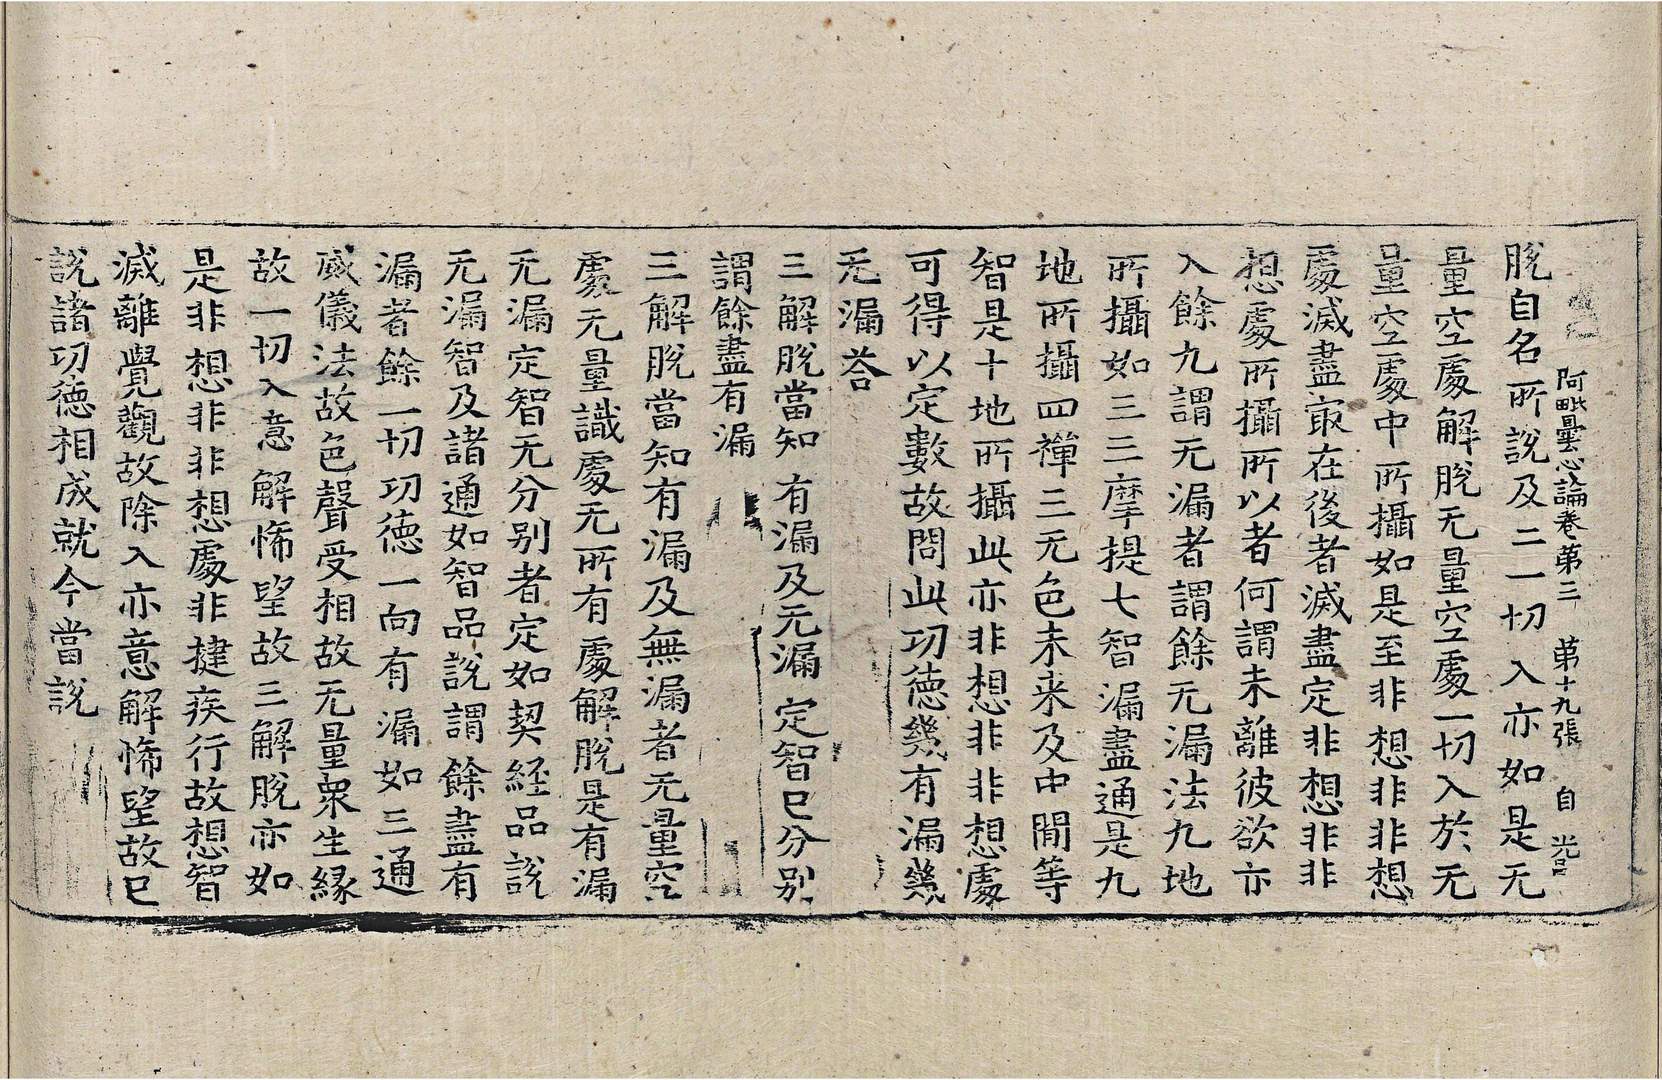 阿毗曇心論卷第三　第十九張　自
脫自名所說及二一切入亦如是无
量空處解脫无量空處一切入於无
量空處中所攝如是至非想非非想
處滅盡㝡在後者滅盡定非想非非
想處所攝所以者何謂未離彼欲亦
入餘九謂无漏者謂餘无漏法九地
所攝如三三摩提七智漏盡通是九
地所攝四禪三无色未来及中閒等
智是十地所攝此亦非想非非想處
可得以定數故問此功德幾有漏幾
无漏荅
三解脫當知　有漏及无漏　定智已分別
謂餘盡有漏
三解脫當知有漏及無漏者无量空
處无量識處无所有處解脫是有漏
无漏定智无分別者定如契経品說
无漏智及諸通如智品說謂餘盡有
漏者餘一切功德一向有漏如三通
威儀法故色聲受相故无量衆生縁
故一切入意解悕望故三解脫亦如
是非想非非想處非揵疾行故想智
滅離覺觀故除入亦意解悕望故已
說諸功德相成就今當說